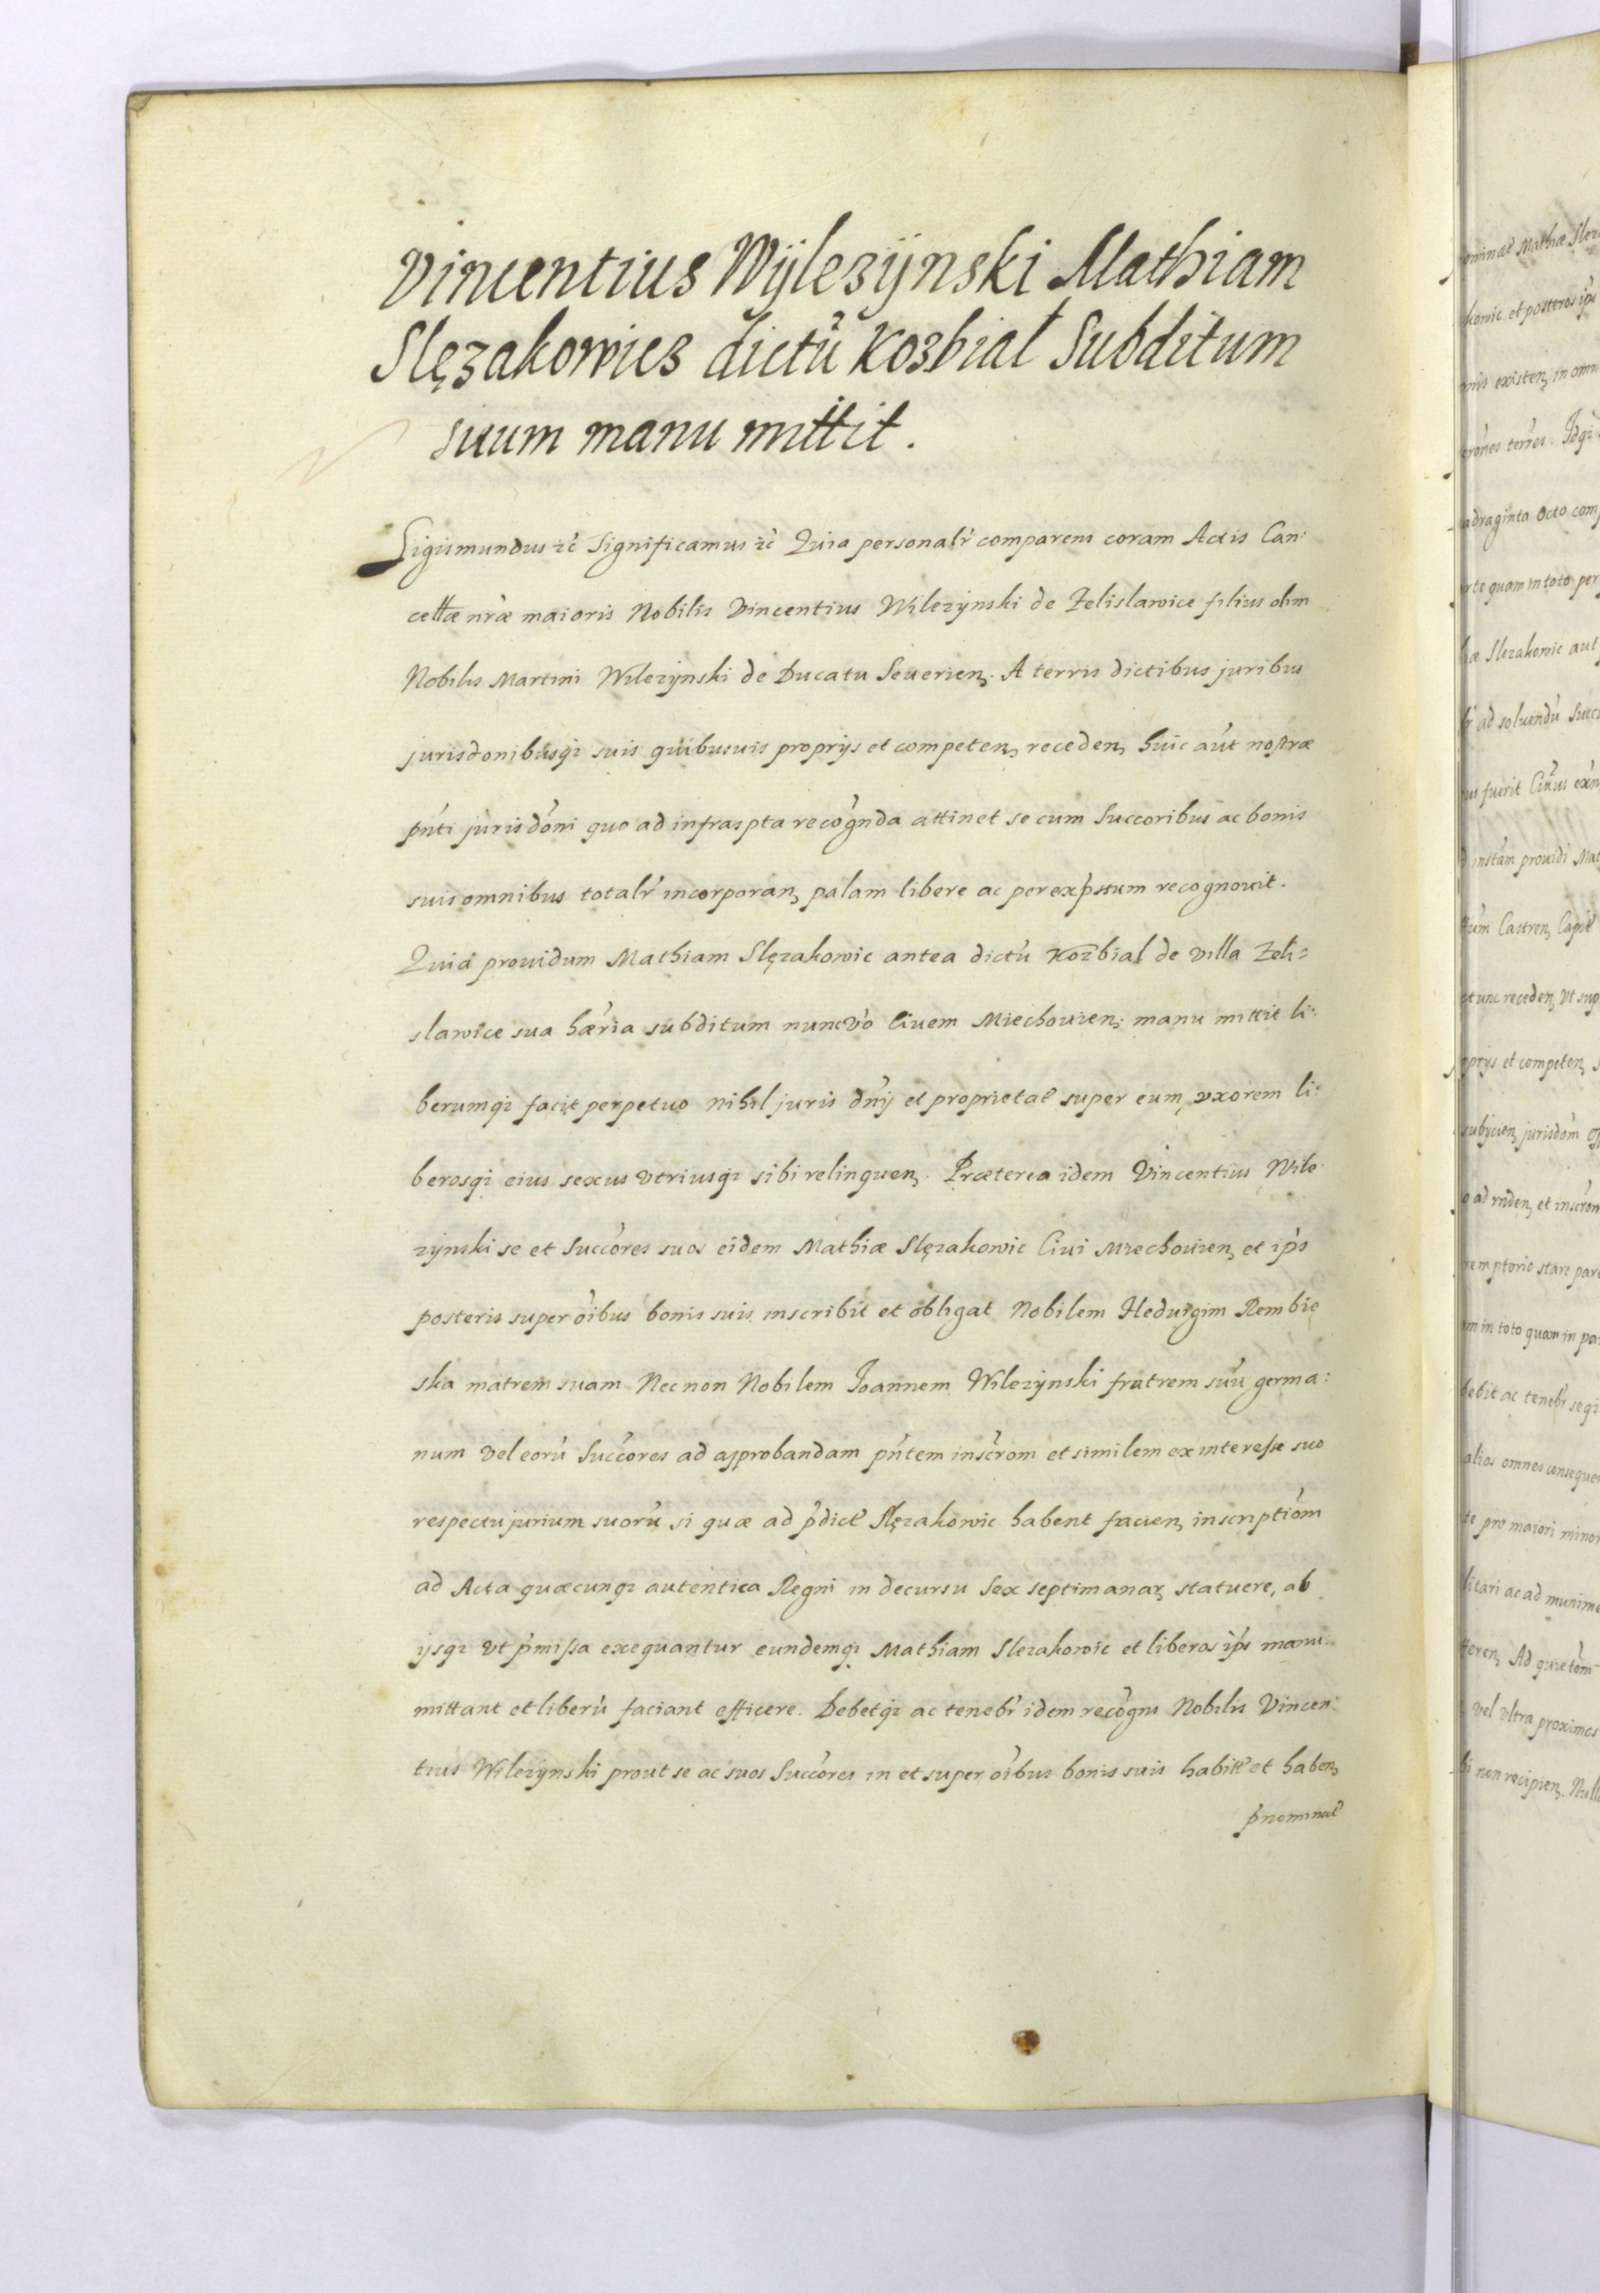 Vincentius Wÿlezÿnski Mathiam
Slęzakowicz dictũ Kozbial Subditum
suum manu mittit.
Sigismundus ꝛc̃ Significamus ꝛc̃ Quia personalr̃ comparens coram Actis Can:
cellæ nr̃æ maioris Nobilis Vincentius Wilezÿnski de Zelislawice filius olim
Nobilis Martini Wilezÿnski de Ducatu Seuerień. A terris dictibus juribus
jurisdonibusqȝ suis quibusuis proprijs et competenȝ recedenȝ huic aũt nostræ
pñti jurisdõni quo ad infraspta recõgnda attinet se cum Succoribus ac bonis
suis omnibus totalr̃ incorporanȝ palam libere ac per exp̃ssum recognouit.
Quia prouidum Mathiam Slęzakowic antea dictũ Kozbial de villa Zeli=
slawice sua hæria subditum nunc vo Ciuem Miechouienȝ manu mittit li:
berumqȝ facit perpetuo nihil juris dñij et proprietat̃ super eum, vxorem li:
berosqȝ eius sexus vtriusqȝ sibi relinquenȝ. Præterea idem Vincentius Wile
zÿnski se et Succõres suos eidem Mathiæ Slęzakowic Ciui Miechouienȝ et ip̃s
posteris super õibus bonis suis inscribit et obligat Nobilem Heduigim Rembie
ska matrem suam Nec non Nobilem Joannem Wilezÿnski fratrem suũ germa:
num vel eorũ Succõres ad approbandam pñtem inscr̃om et similem ex interesse suo
respectu jurium suorũ si quæ ad p̃dict̃ Slęzakowic habent facienȝ inscriptiõm
ad Acta quæcunqȝ autentica Regni in decursu Sex septimanaꝝ statuere, ab
ijsqȝ vt p̃missa exequantur eundemqȝ Mathiam Slezakowic et liberos ip̃s manu:
mittant et liberũ faciant efficere. Debetqȝ ac tenebr̃ idem recõgns Nobilis Vincen:
tius Wilezÿnski prout se ac suos Succõres in et super õibus bonis suis habitt̃ et habenȝ
p̃nominat̃